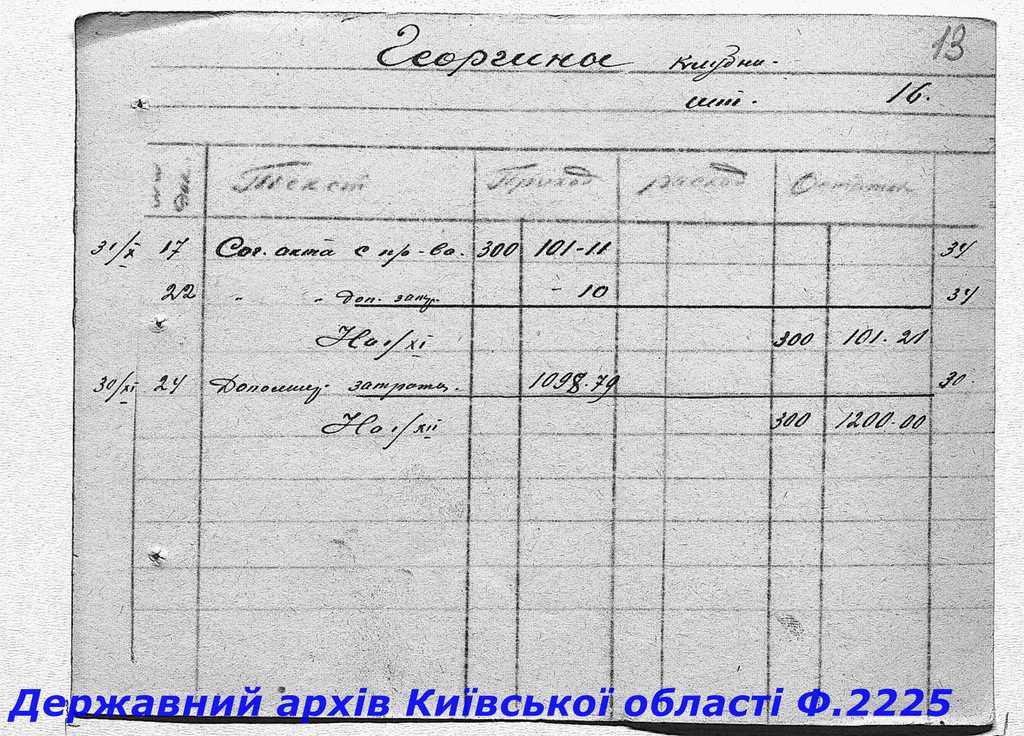 13
Георгины клубни.
шт. 16.
Текст Приход расход Остаток
31/X 17 Сог. акта с пр-ва. 300 101-11 34
22 " " доп. затр. - 10 34
На 1/XI 300 101.21
30/XI 24 Дополнит. затраты. 1098.79 30.
На 1/XII 300 1200-00
Державний архів Київської області Ф.2225